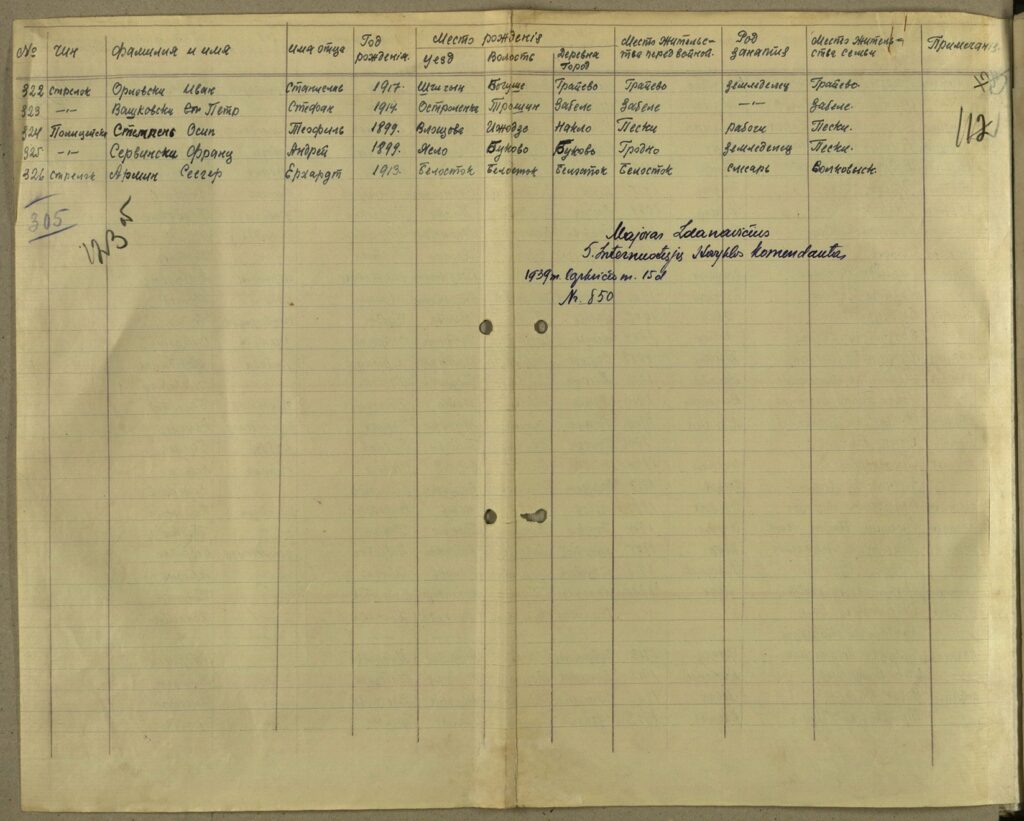 № Чин Фамилия и има има отца Год рожденія. Место рожденія уезд Волость Деревна Город Место Жительства перед войной. Род занатия Место Жительства семьи Примечание
322 стрелок Орловски Иван Станислав 1917. Щучин Богуше Граево Граево земледелец Граево.
323 —"— Вашковски Петр Стефан 1914. Забеле Забеле —"— Забеле.
324 Осип Теофиль 1899. Накло Пески рабочи Пески.
325 —"— Сервински Франц Андрей 1899. Ясло Буково Буково Гродно земледелец Пески.
326 стрелок Армин Ерхардт 1913. Белосток Белосток Белосток Белосток слесарь Волковыск.
305
1235
112
Majoras Zdanavičius
5. Internuotųjų Stovyklos komendantas
1939 m. lapkričio m. 15 d
Nr. 850